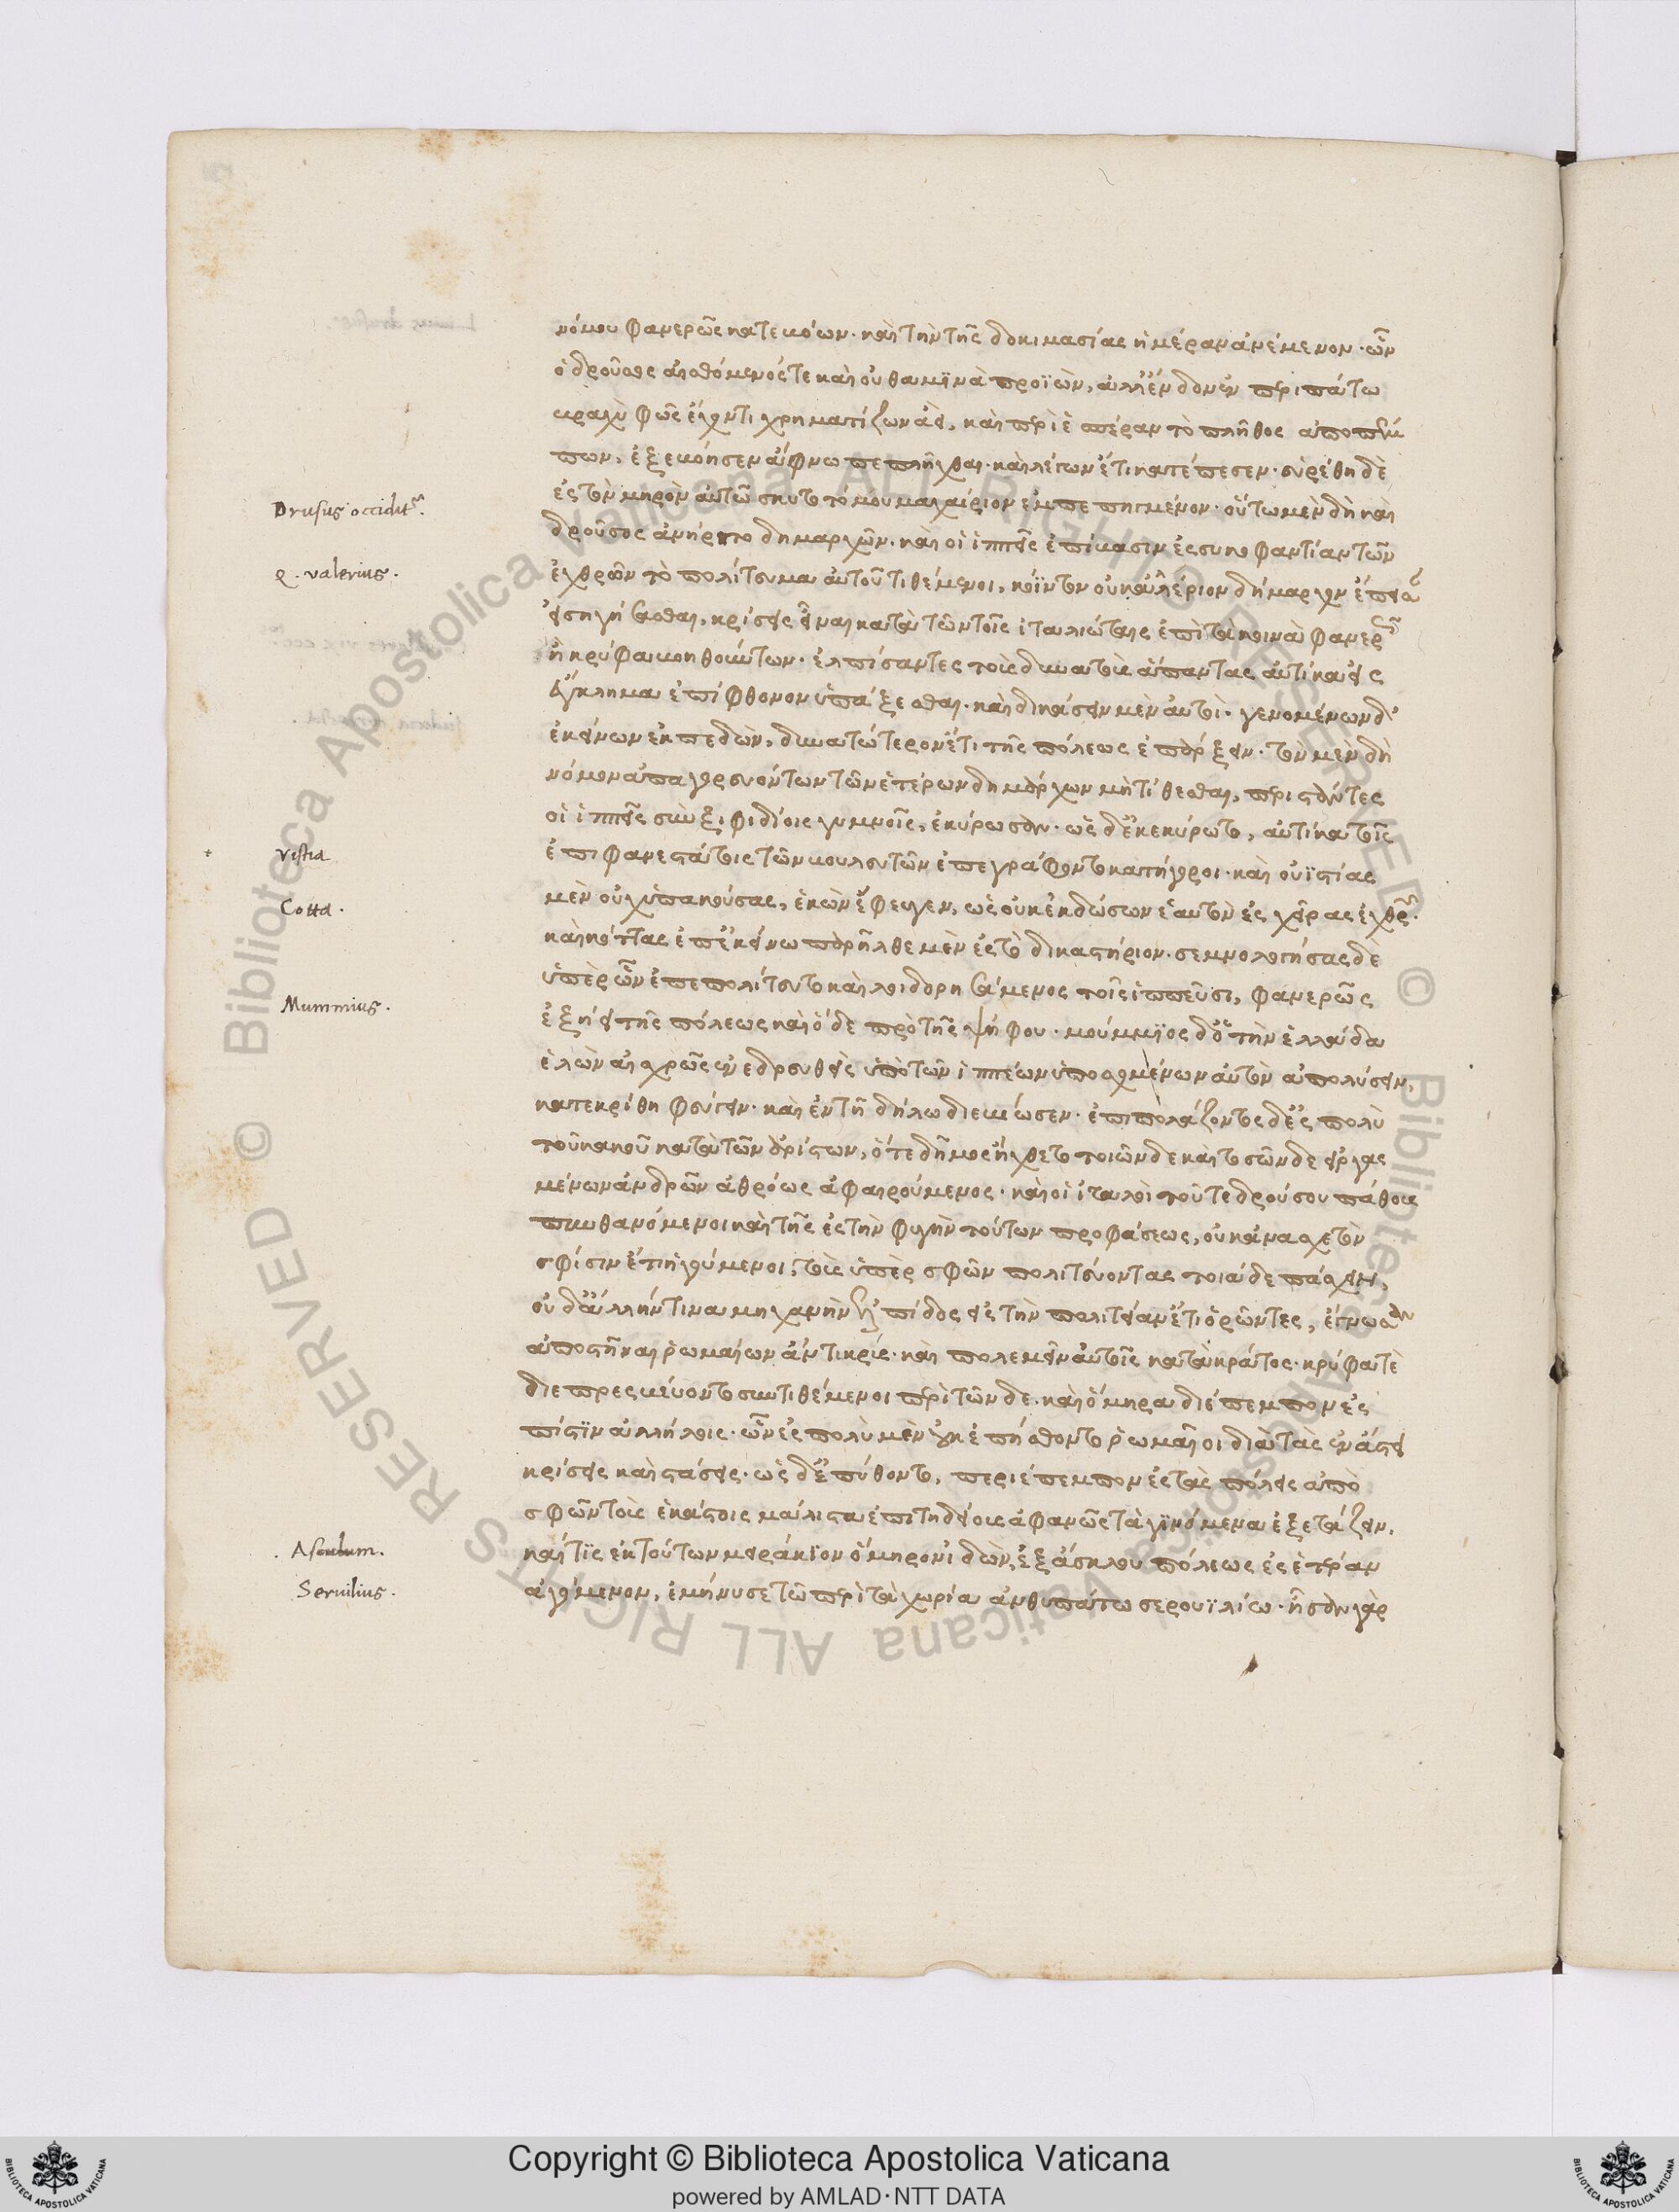 νόμου φανερῶς κατεβόων· καὶ τὴν τῆς δοκιμασίας ἡμέραν ἀνέμενον· ὧν
ὁ δροῦσος αἰσθόμενός τε καὶ οὐ θαμϊνὰ προϊὼν, ἀλλ' ἔνδον ἐν περιπάτω
βραχὺ φῶς ἔχοντι χρηματίζων ἀεὶ, καὶ περὶ ἑσπέραν τὸ πλῆθος ἀποπέμ
πων, ἐξεβόησεν ἄφνω πεπλῆχθαι· καὶ λέγων ἔτι κατέπεσεν· εὑρέθη δὲ
Drusus occidit(ur).
ἐς τὸν μηρὸν αὐτῶ σκυτοτόμου μαχαίριον ἐμπεπηγμένον· οὕτω μὲν δὴ καὶ
δροῦσος ἀνήρητο δημαρχῶν· καὶ οἱ ἱππεῖς ἐπίβασιν ἐς συκοφαντίαν τῶν
Q. Valerius.
ἐχθρῶν τὸ πολίτευμα αὐτοῦ τιθέμενοι, κόϊντον οὐαλέριον δήμαρχον ἔπεισαν
εἰσηγήσασθαι, κρίσεις εἶναι κατὰ τῶν τοῖς ἰταλιώταις ἐπὶ τὰ κοινὰ φανερῶς
ἢ κρύφα βοηθούντων· ἐλπίσαντες τοὺς δυνατοὺς ἅπαντας αὐτίκα εἰς
ἔγκλημα ἐπίφθονον ὑπάξεσθαι· καὶ δικάσειν μὲν αὐτοὶ· γενομένων δ'
ἐκείνων ἐκποδὼν, δυνατώτερον ἔτι τῆς πόλεως ἐπάρξειν· τὸν μὲν δὴ
νόμον ἀπαγορευόντων τῶν ἑτέρων δημάρχων μὴ τίθεσθαι, περιστάντες
οἱ ἱππεῖς σὺν ξιφιδίοις γυμνοῖς, ἐκύρωσαν· ὡς δ' ἐκεκύρωτο, αὐτίκα τοῖς
Vestia
ἐπιφανεστάτοις τῶν βουλευτῶν ἐπεγράφοντο κατήγοροι· καὶ οὐϊστίας
Cotta.
μὲν οὐχ ὑπακούσας, ἑκὼν ἔφευγεν, ὡς οὐκ ἐκδώσων ἑαυτὸν ἐς χεῖρας ἐχθρῶν·
καὶ κόττας ἐπ' ἐκείνω παρῆλθε μὲν ἐς τὸ δικαστήριον· σεμνολογήσας δὲ
ὑπὲρ ὧν ἐπεπολίτευτο καὶ λοιδορησάμενος τοῖς ἱππεῦσι, φανερῶς
Mummius.
ἐξῄει τῆς πόλεως καὶ ὅδε πρὸ τῆς ψήφου· μούμμϊος δ' ὁ τὴν ἑλλάδα
ἑλὼν αἰσχρῶς ἐνεδρευθεὶς ὑπὸ τῶν ἱππέων ὑποσχομένων αὐτὸν ἀπολύσειν,
κατεκρίθη φεύγειν· καὶ ἐν τῇ δήλω διεβίωσεν· ἐπιπολάζοντος δ' ἐς πολὺ
τοῦ κακοῦ κατὰ τῶν ἀρίστων, ὅ τε δῆμος ἤχθετο τοιῶνδε καὶ τοσῶνδε εἰργασ
μένων ἀνδρῶν ἀθρόως ἀφαιρούμενος· καὶ οἱ ἰταλοὶ τοῦ τε δρούσου πάθους
πυνθανόμενοι καὶ τῆς ἐς τὴν φυγὴν τούτων προφάσεως, οὐκ ἀνασχετὸν
σφίσιν ἔτι ἡγούμενοι, τοὺς ὑπὲρ σφῶν πολιτεύοντας τοιάδε πάσχειν,
οὐδ' ἄλλην τινα μηχανὴν ἐλπίδος ἐς τὴν πολιτείαν ἔτι ὁρῶντες, ἔγνωσαν
ἀποστῆναι ῥωμαίων ἄντικρυς· καὶ πολεμεῖν αὐτοῖς κατὰ κράτος· κρύφα τὲ
διεπρεσβεύοντο συντιθέμενοι περὶ τῶνδε· καὶ ὅμηρα διέπεμπον ἐς
πίστϊν ἀλλήλοις· ὧν ἐς πολὺ μὲν οὐκ ἐπῄσθοντο ῥωμαῖοι διὰ τὰς ἐν ἄστει
κρίσεις καὶ στάσεις· ὡς δ' ἐπύθοντο, περιέπεμπον ἐς τὰς πόλεις ἀπὸ
σφῶν τοὺς ἑκάστοις μάλιστα ἐπιτηδείους ἀφανῶς τὰ γϊνόμενα ἐξετάζειν.
Asculum.
καί τϊς ἐκ τούτων μειράκϊον ὅμηρον ἰδὼν ἐξ ἄσκλου πόλεως ἐς ἑτέραν
Servilius.
ἀγόμενον, ἐμήνυσε τῶ περὶ τὰ χωρία ἀνθυπάτω σερουϊλίω· ἦσαν γὰρ
Copyright © Biblioteca Apostolica Vaticana
powered by AMLAD·NTT DATA